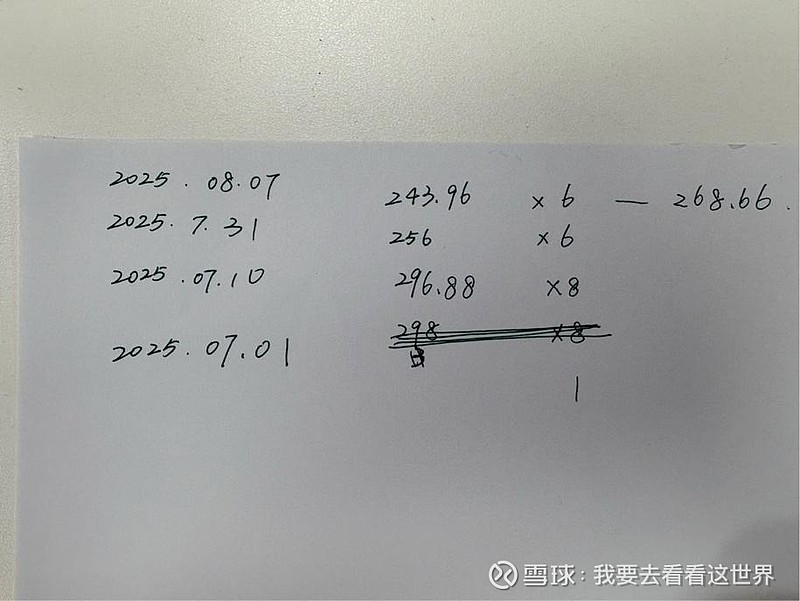 2025.08.07 243.96 ×6 — 268.66.
2025.7.31 256 ×6
2025.07.10 296.88 ×8
2025.07.01 298 ×8
1
雪球:我要去看看这世界